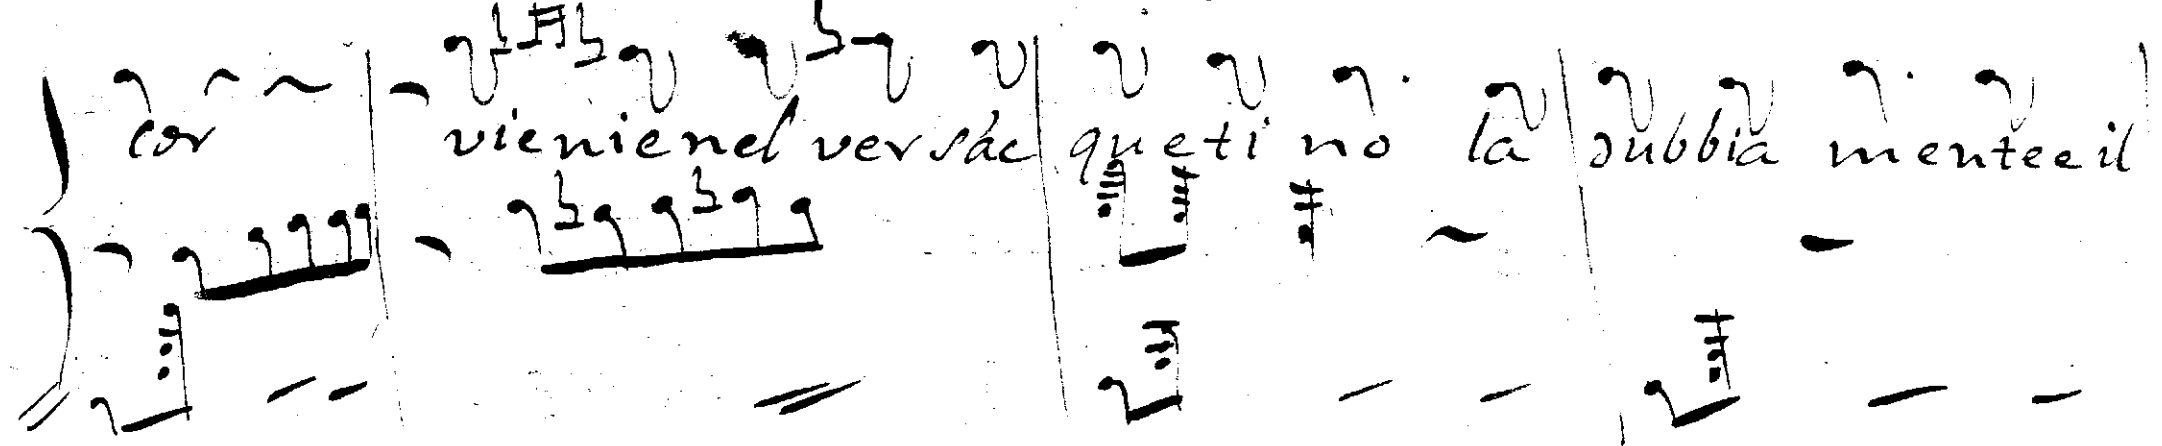 cor vienienel versác queti no la dubbia menteeil